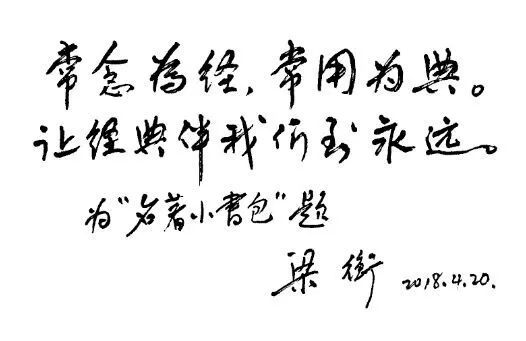 常念为经,常用为典。
让经典伴我们到永远。
为“名著小書包”题
梁衡 2018.4.20.